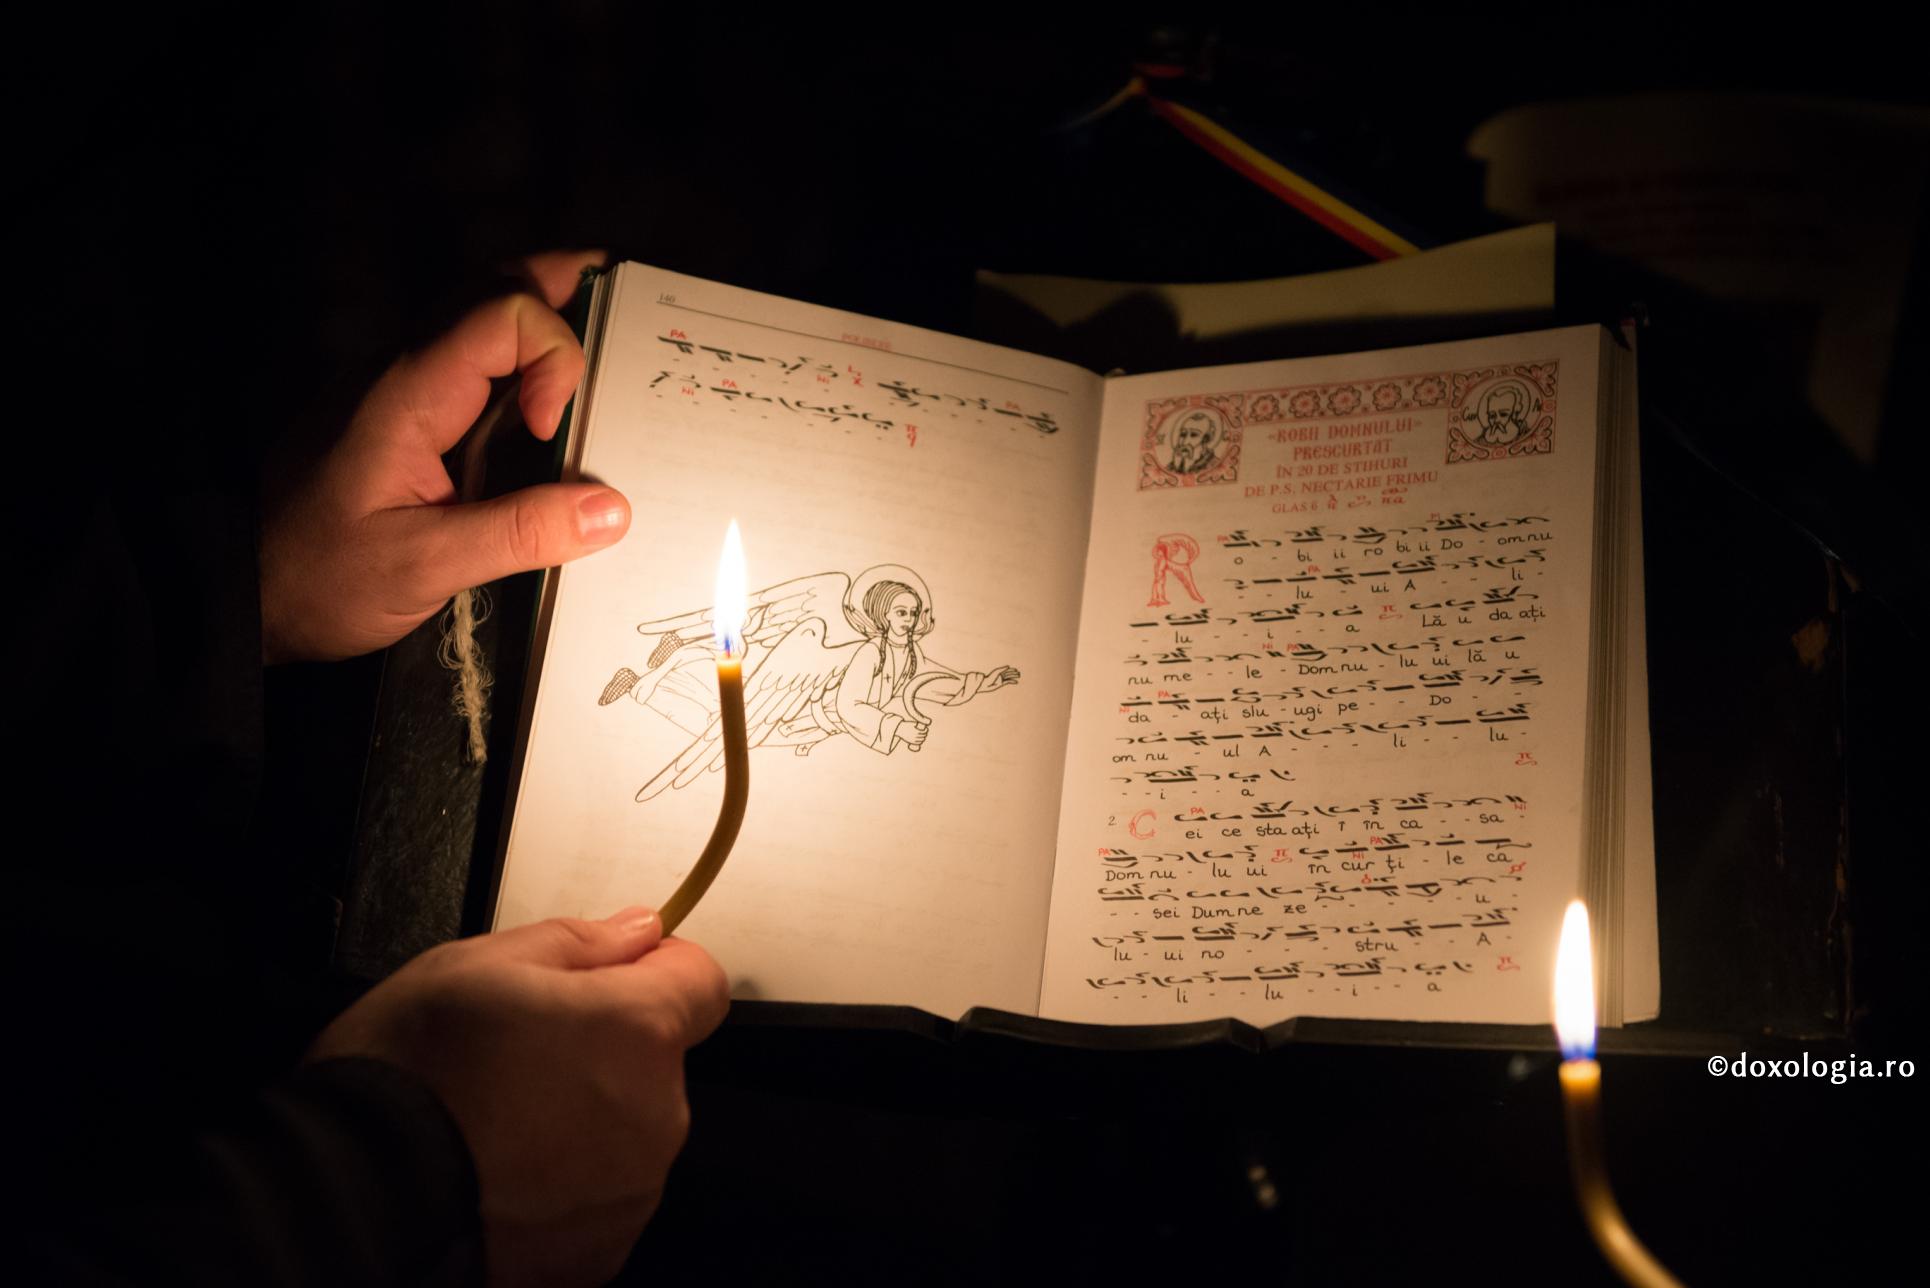 140
POLIELEE
PA
NI
PA
NI
PA
«ROBII DOMNULUI»
PRESCURTAT
ÎN 20 DE STIHURI
DE P.S. NECTARIE FRIMU
GLAS 6
R o - bi ii ro bi ii Do - omnu
- lu - - ui A - - li -
- lu - - i - - a Lă u da ați
nu me - - le - Domnu - lu ui lă u
da - ați slu - ugi pe - - Do - -
omnu - ul A - - - li - - lu -
- - i - - a
2. C ei ce sta ați î în ca - - sa -
Domnu - lu ui în cur ți - le ca
- - sei Dumne ze - - - - - u -
lu - ui no - - - - stru - - A -
- - li - - lu - - i - - a
©doxologia.ro